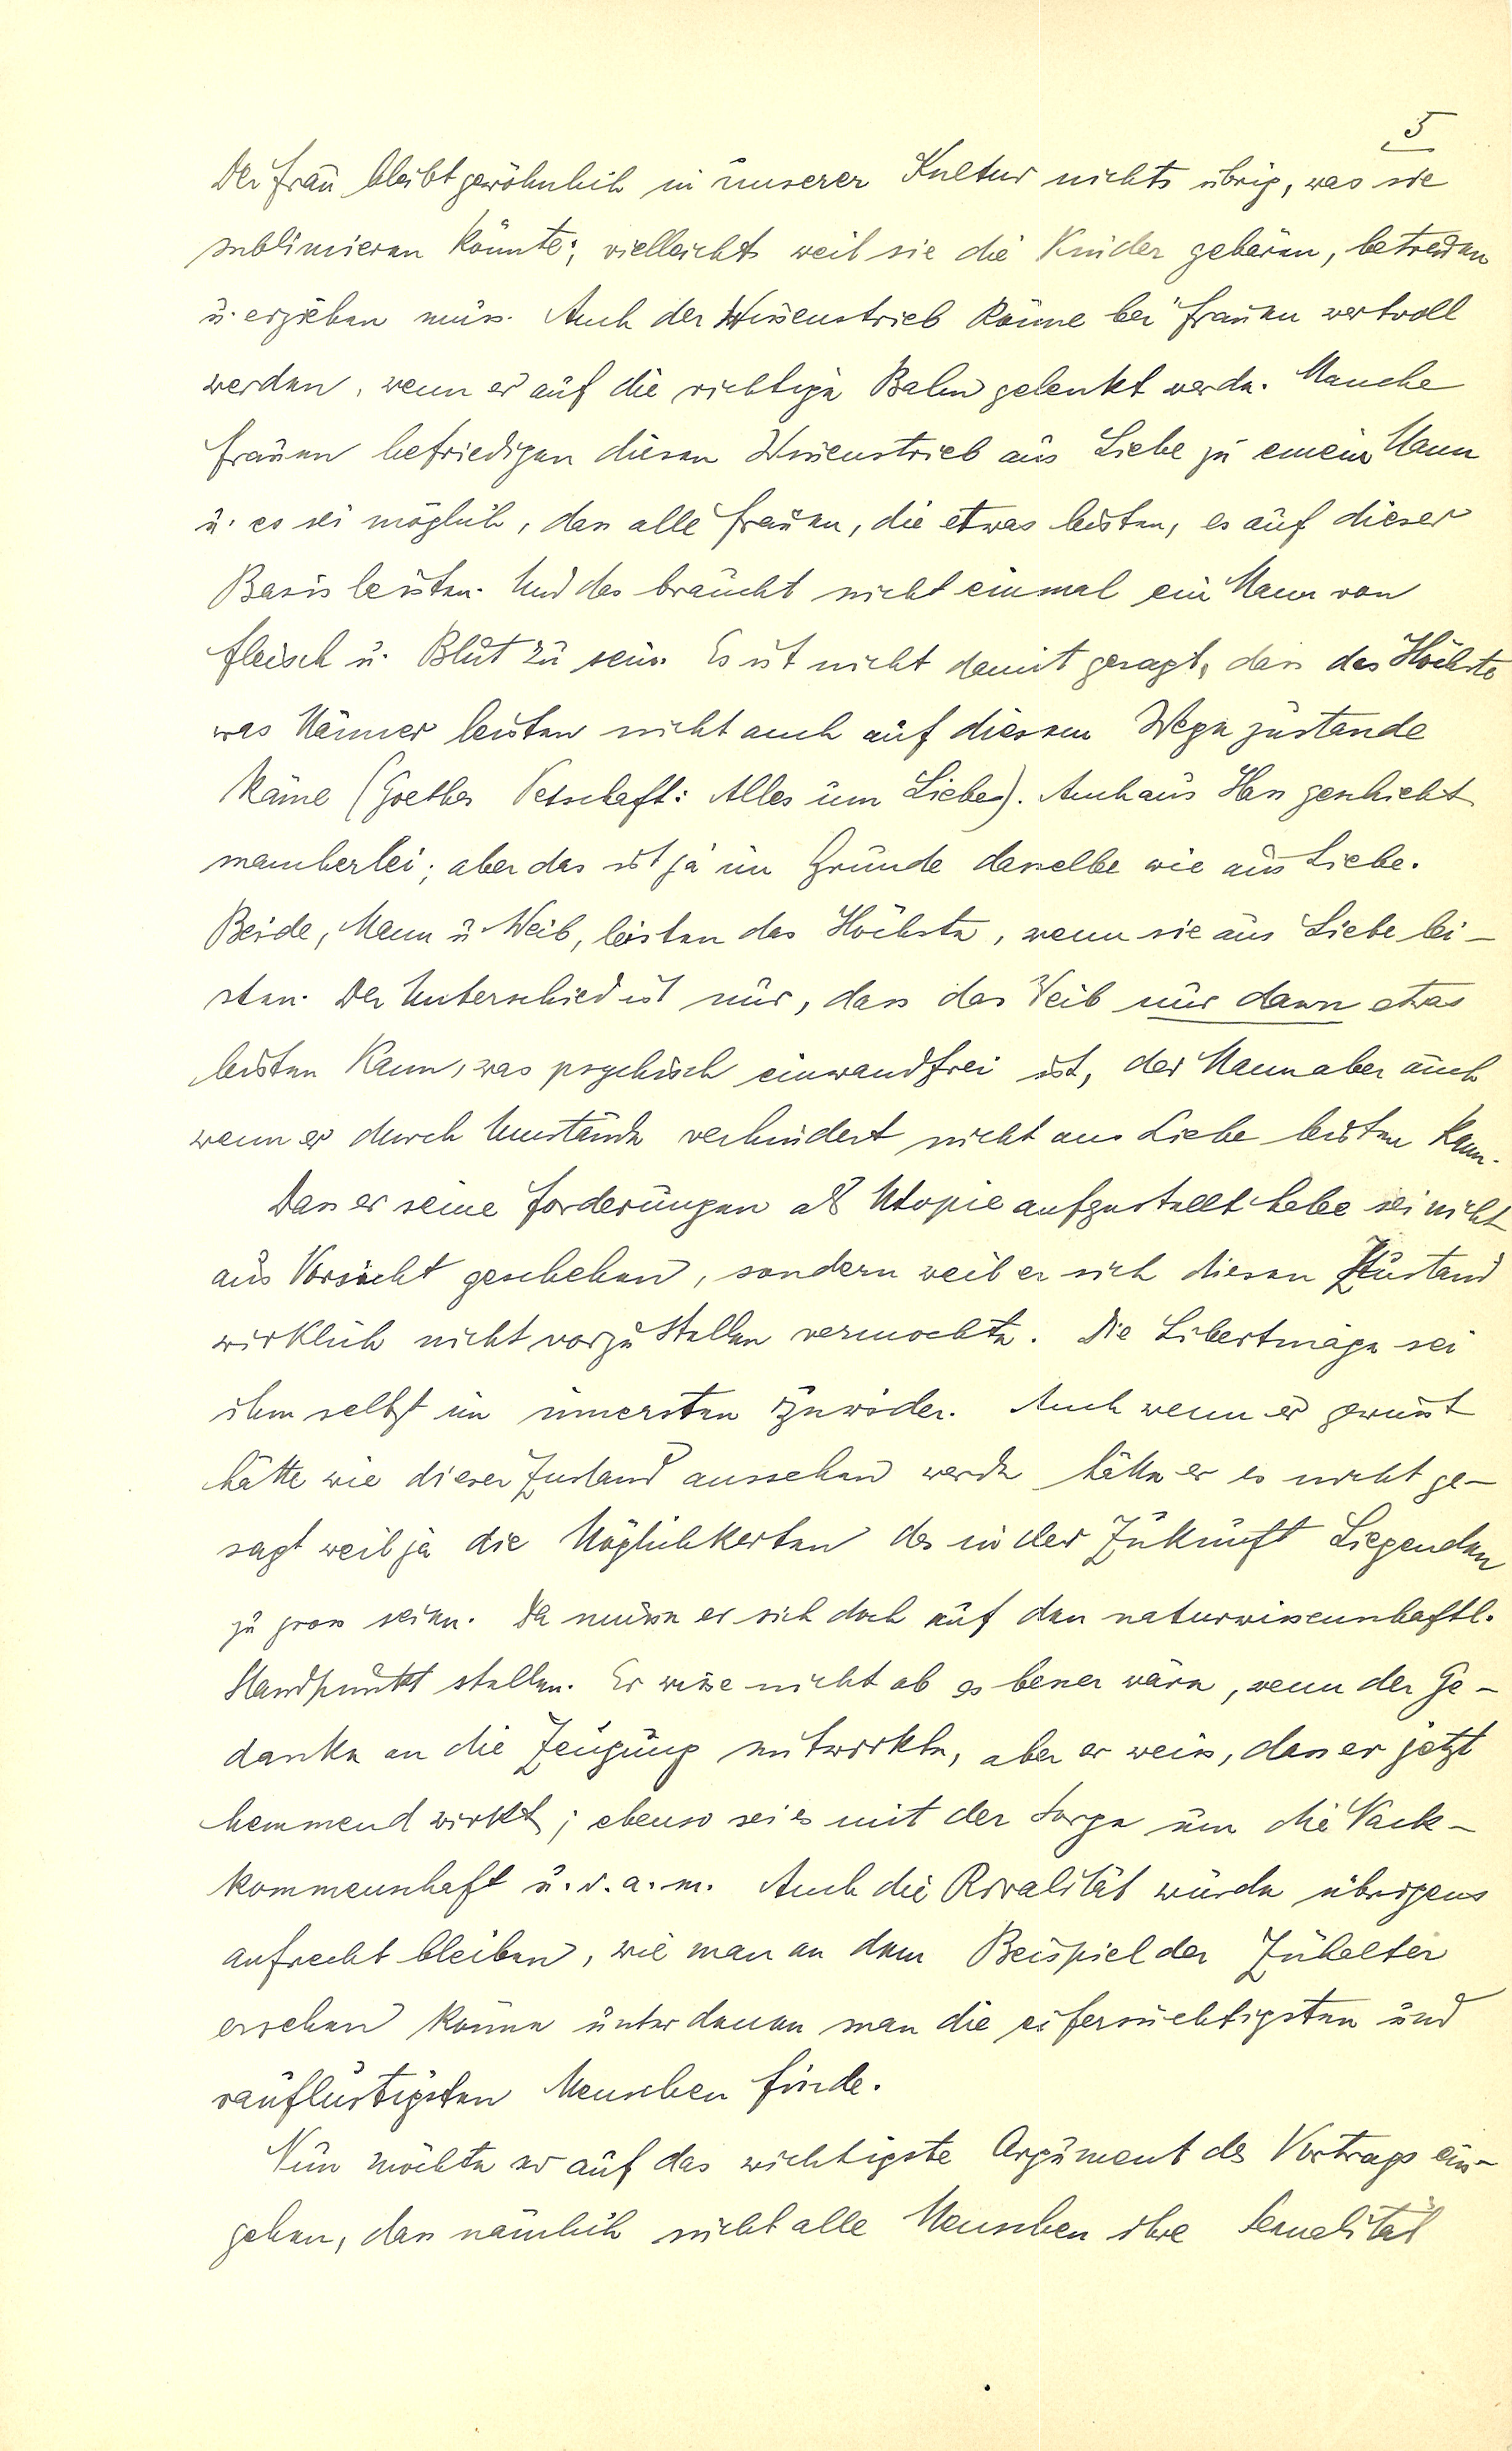 5
Der Frau bleibt gewöhnlich in unserer Kultur nichts übrig, was sie
sublimieren könnte; vielleicht weil sie die Kinder gebären, betreuen
u. erziehen muss. Auch der Wissenstrieb könne bei Frauen wertvoll
werden, wenn er auf die richtige Bahn gelenkt werde. Manche
Frauen befriedigen diesen Wissenstrieb aus Liebe zu einem Mann
u. es sei möglich, dass alle Frauen, die etwas leisten, es auf dieser
Basis leisten. Und das braucht nicht einmal ein Mann von
Fleisch u. Blut zu sein. Es ist nicht damit gesagt, dass das Höchste
was Männer leisten nicht auch auf diesem Wege zustande
käme (Goethes Petschaft: Alles um Liebe). Auch aus Hass geschieht
mancherlei; aber das ist ja im Grunde dasselbe wie aus Liebe.
Beide, Mann u. Weib, leisten das Höchste, wenn sie aus Liebe lei-
sten. Der Unterschied ist nur, dass das Weib nur dann etwas
leisten kann, was psychisch einwandfrei ist, der Mann aber auch
wenn er durch Umstände verhindert nicht aus Liebe leisten kann.
Dass er seine Forderungen als Utopie aufgestellt habe sei nicht
aus Vorsicht geschehen, sondern weil er sich diesen Zustand
wirklich nicht vorzustellen vermochte. Die Libertinage sei
ihm selbst im innersten zuwider. Auch wenn er gewusst
hätte wie dieser Zustand aussehen werde hätte er es nicht ge-
sagt weil ja die Möglichkeiten des in der Zukunft Liegenden
zu gross seien. Da müsse er sich doch auf den naturwissenschaftl.
Standpunkt stellen. Er wisse nicht ob es besser wäre, wenn der Ge-
danke an die Zeugung mitwirkte, aber er weiss, dass er jetzt
hemmend wirkt; ebenso sei es mit der Sorge um die Nach-
kommenschaft u. v. a. m. Auch die Rivalität würde übrigens
aufrecht bleiben, wie man an dem Beispiel der Zuhälter
ersehen könne unter denen man die eifersüchtigsten und
rauflustigsten Menschen finde.
Nun möchte er auf das wichtigste Argument des Vortrags ein-
gehen, dass nämlich nicht alle Menschen ihre Sexualität